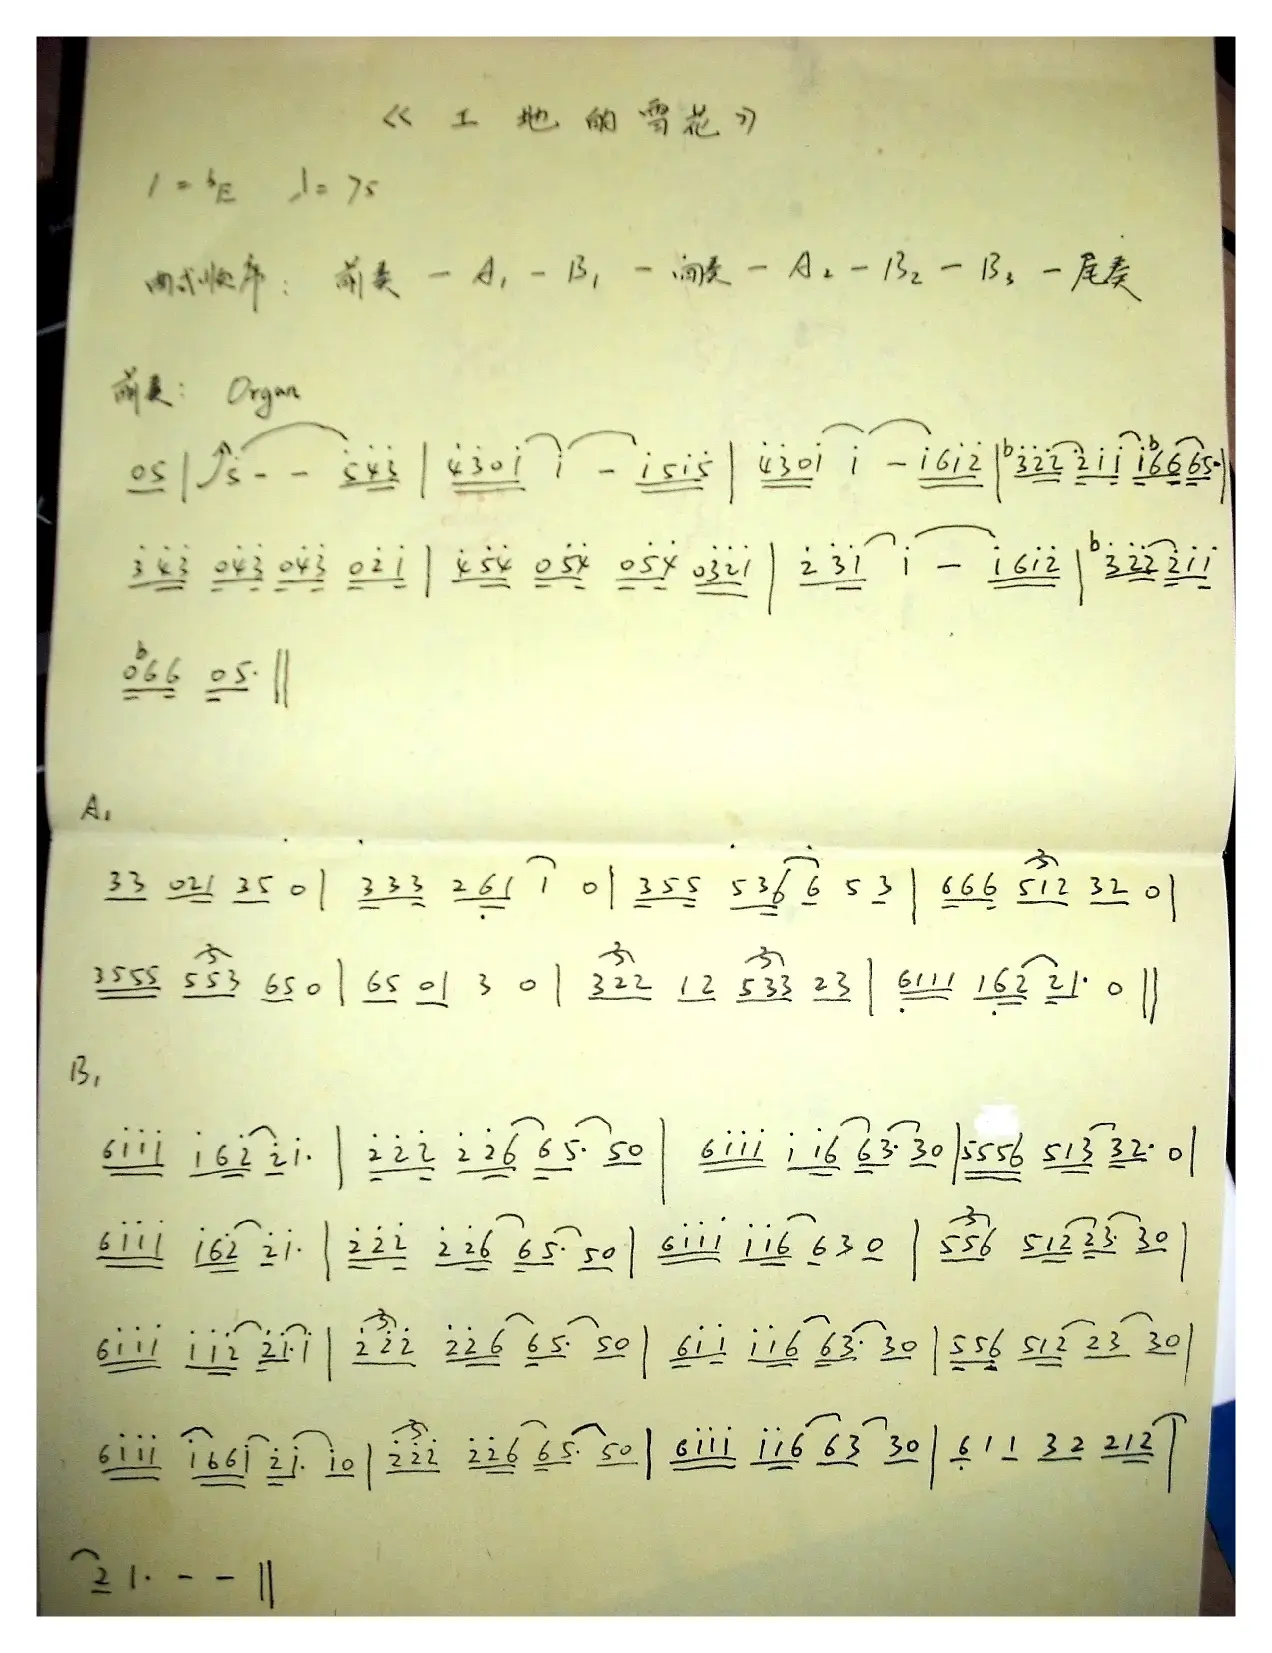 《工地的雪花》
1=♭E ♩=75
曲式顺序: 前奏 - A₁ - B₁ - 间奏 - A₂ - B₂ - B₃ - 尾奏
前奏: Organ
05 | 5 - - 543 | 4301 1 - 1515 | 4301 1 - 1612 | ♭322 211 1♭66 65· |
343 043 043 021 | 454 054 054 0321 | 231 1 - 1612 | ♭322 211
0♭66 05· ‖
A₁
33 021 35 0 | 333 261 1 0 | 355 536 6 53 | 666 512 32 0 |
3555 553 65 0 | 65 01 3 0 | 322 12 533 23 | 6111 162 21· 0 ‖
B₁
6111 162 21· | 222 226 65· 50 | 6111 116 63· 30 | 5556 513 32· 0 |
6111 162 21· | 222 226 65· 50 | 6111 116 63 0 | 556 512 23· 30 |
6111 112 21·1 | 222 226 65· 50 | 611 116 63· 30 | 556 512 23 30 |
6111 1661 21· 10 | 222 226 65· 50 | 6111 116 63 30 | 611 32 212 |
21· - - ‖